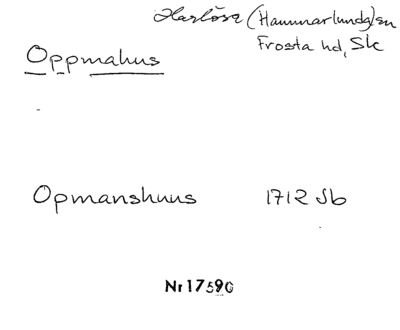 Harlösa (Hammarlunda) sn
Frosta hd, Sk
Oppmahus
Opmanshuus 1712 Jb
Nr 17590